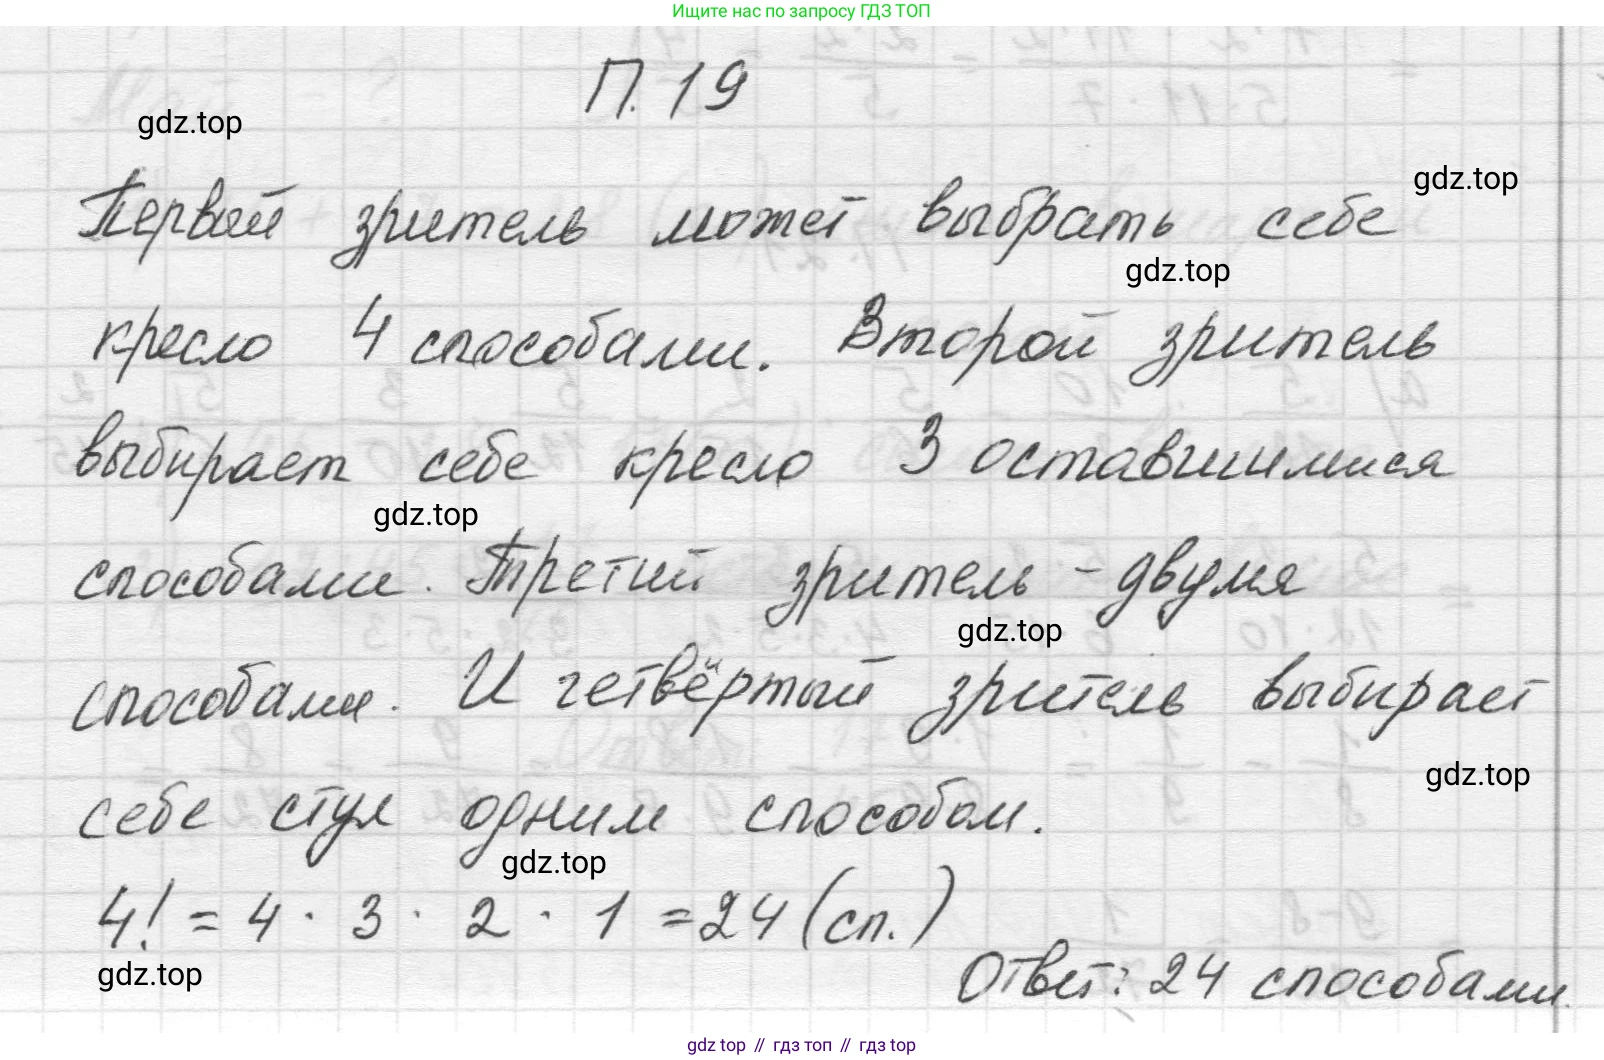 Ищите нас по запросу ГДЗ ТОП
П. 19
gdz.top
gdz.top
Первый зритель может выбрать себе
gdz.top
кресло 4 способами. Второй зритель
выбирает себе кресло 3 оставшимися
gdz.top
способами. Третий зритель - двумя
gdz.top
способами. И четвёртый зритель выбирает
gdz.top
себе стул одним способом.
gdz.top
4! = 4 · 3 · 2 · 1 = 24 (сп.)
gdz.top
Ответ: 24 способами.
gdz top // гдз топ // гдз top